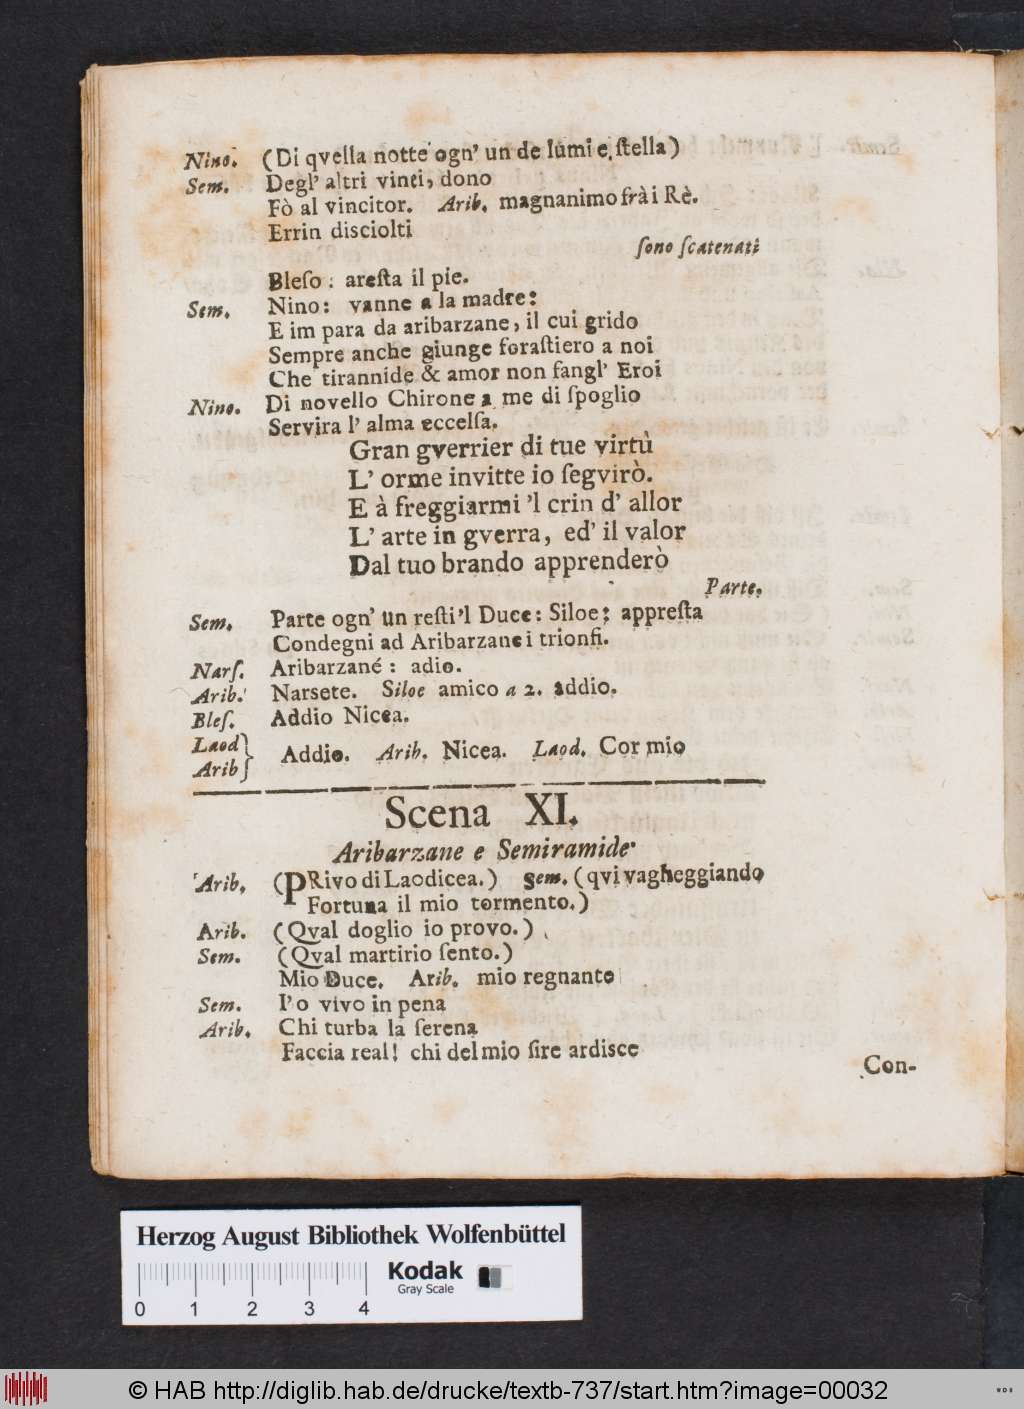 Nino. (Di qvella notte ogn' un de lumi e stella)
Sem. Degl' altri vinti, dono
Fò al vincitor. Arib. magnanimo frà i Rè.
Errin disciolti
ſono ſcatenati
Bleſo: areſta il pie.
Sem. Nino: vanne a la madre:
E im para da aribarzane, il cui grido
Sempre anche giunge foraſtiero a noi
Che tirannide & amor non fangl' Eroi
Nino. Di novello Chirone a me di ſpoglio
Servira l' alma eccelſa.
Gran gverrier di tue virtù
L' orme invitte io ſegvirò.
E à freggiarmi 'l crin d' allor
L' arte in gverra, ed' il valor
Dal tuo brando apprenderò
Parte.
Sem. Parte ogn' un reſti 'l Duce: Siloe: appreſta
Condegni ad Aribarzane i trionfi.
Narſ. Aribarzané: adio.
Arib. Narsete. Siloe amico a 2. addio.
Bleſ. Addio Nicea.
Laod } Addio. Arib. Nicea. Laod. Cor mio
Arib
Scena XI.
Aribarzane e Semiramide
Arib. (PRivo di Laodicea.) Sem. (qvi vagheggiando
Fortuna il mio tormento.)
Arib. (Qval doglio io provo.)
Sem. (Qval martirio ſento.)
Mio Duce. Arib. mio regnante
Sem. I' o vivo in pena
Arib. Chi turba la ſerena
Faccia real! chi del mio ſire ardisce
Con-
Herzog August Bibliothek Wolfenbüttel
Kodak
Gray Scale
0 1 2 3 4
© HAB http://diglib.hab.de/drucke/textb-737/start.htm?image=00032